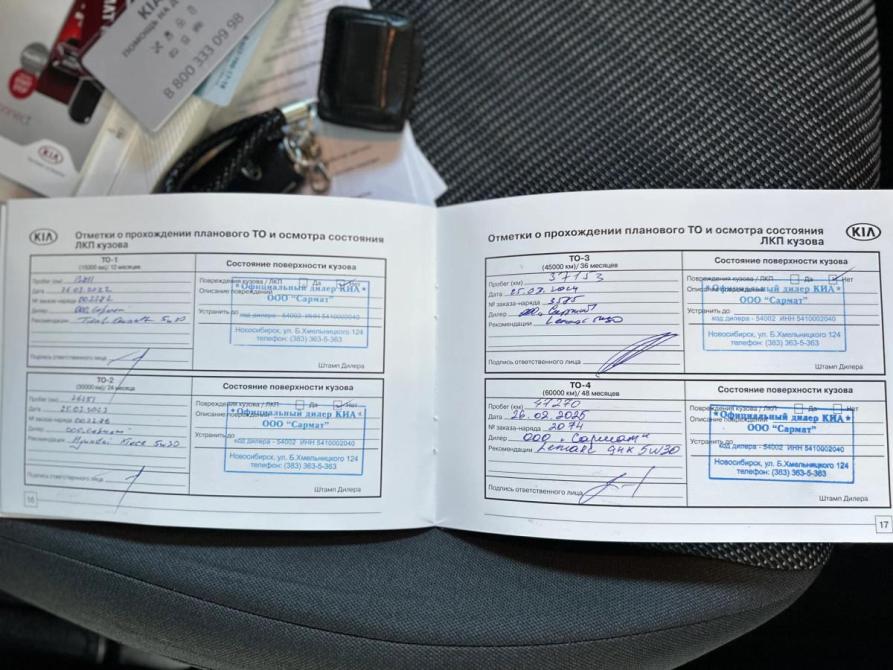 KIA
ПОМОЩЬ НА Д
8 800 333 09 98
KIA
KIA
Отметки о прохождении планового ТО и осмотра состояния
ЛКП кузова
ТО-1
(15000 км)/ 12 месяцев
Состояние поверхности кузова
Пробег (км)
Дата
№ заказ-наряда
Дилер
Рекомендации
Подпись ответственного лица
Повреждения кузова / ЛКП Да Нет
Описание повреждений
Устранить до
Официальный дилер КИА
ООО "Сармат"
код дилера - 54002 ИНН 5410002040
Новосибирск, ул. Б.Хмельницкого 124
телефон: (383) 363-5-363
Штамп Дилера
ТО-2
(30000 км)/ 24 месяца
Состояние поверхности кузова
Пробег (км)
Дата 25.02.2023
№ заказ-наряда
Дилер
Рекомендации Hyundai 5w30
Подпись ответственного лица
Повреждения кузова / ЛКП Да Нет
Описание
Устранить до
Официальный дилер КИА
ООО "Сармат"
код дилера - 54002 ИНН 5410002040
Новосибирск, ул. Б.Хмельницкого 124
телефон: (383) 363-5-363
Штамп Дилера
16
Отметки о прохождении планового ТО и осмотра состояния
ЛКП кузова
KIA
ТО-3
(45000 км)/ 36 месяцев
Состояние поверхности кузова
Пробег (км) 37153
Дата
№ заказ-наряда
Дилер ООО "Сармат"
Рекомендации Lemarc
Подпись ответственного лица
Повреждения кузова / ЛКП Да Нет
Описание повреждений
Устранить до
Официальный дилер КИА
ООО "Сармат"
код дилера - 54002 ИНН 5410002040
Новосибирск, ул. Б.Хмельницкого 124
телефон: (383) 363-5-363
Штамп Дилера
ТО-4
(60000 км)/ 48 месяцев
Состояние поверхности кузова
Пробег (км) 47270
Дата 26.02.2025
№ заказ-наряда 2074
Дилер ООО "Сармат"
Рекомендации Lemarc 5W30
Подпись ответственного лица
Повреждения кузова / ЛКП Да Нет
Описание
Устранить до
Официальный дилер КИА
ООО "Сармат"
код дилера - 54002 ИНН 5410002040
Новосибирск, ул. Б.Хмельницкого 124
телефон: (383) 363-5-363
Штамп Дилера
17